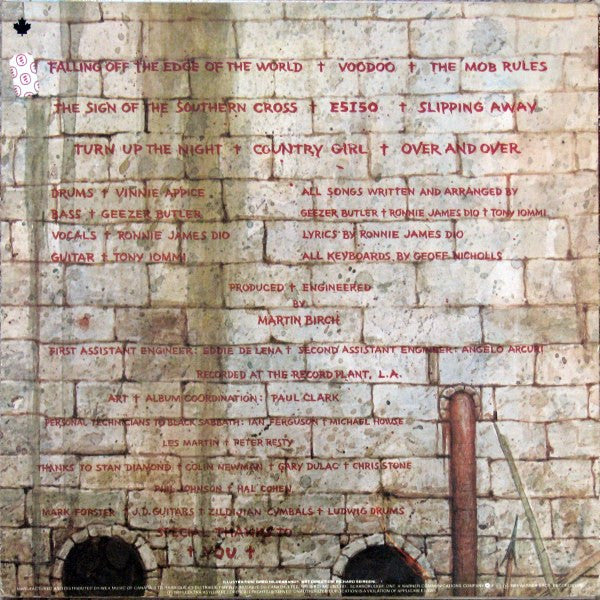 FALLING OFF THE EDGE OF THE WORLD † VOODOO † THE MOB RULES
THE SIGN OF THE SOUTHERN CROSS † E5150 † SLIPPING AWAY
TURN UP THE NIGHT † COUNTRY GIRL † OVER AND OVER
DRUMS † VINNIE APPICE
BASS † GEEZER BUTLER
VOCALS † RONNIE JAMES DIO
GUITAR † TONY IOMMI
ALL SONGS WRITTEN AND ARRANGED BY
GEEZER BUTLER † RONNIE JAMES DIO † TONY IOMMI
LYRICS BY RONNIE JAMES DIO
ALL KEYBOARDS BY GEOFF NICHOLLS
PRODUCED † ENGINEERED
BY
MARTIN BIRCH
FIRST ASSISTANT ENGINEER: EDDIE DE LENA † SECOND ASSISTANT ENGINEER: ANGELO ARCURI
RECORDED AT THE RECORD PLANT, L.A.
ART † ALBUM COORDINATION: PAUL CLARK
PERSONAL TECHNICIANS TO BLACK SABBATH: IAN FERGUSON † MICHAEL HOWSE
LES MARTIN † PETER RESTY
THANKS TO STAN DIAMOND † COLIN NEWMAN † GARY DULAC † CHRIS STONE
PHIL JOHNSON † HAL COHEN
MARK FORSTER † J.D. GUITARS † ZILDJIAN CYMBALS † LUDWIG DRUMS
SPECIAL THANKS TO
† YOU †
ILLUSTRATION: GREG HILDEBRANDT, ART DIRECTION: RICHARD SEIREENI
MANUFACTURED AND DISTRIBUTED BY WEA MUSIC OF CANADA